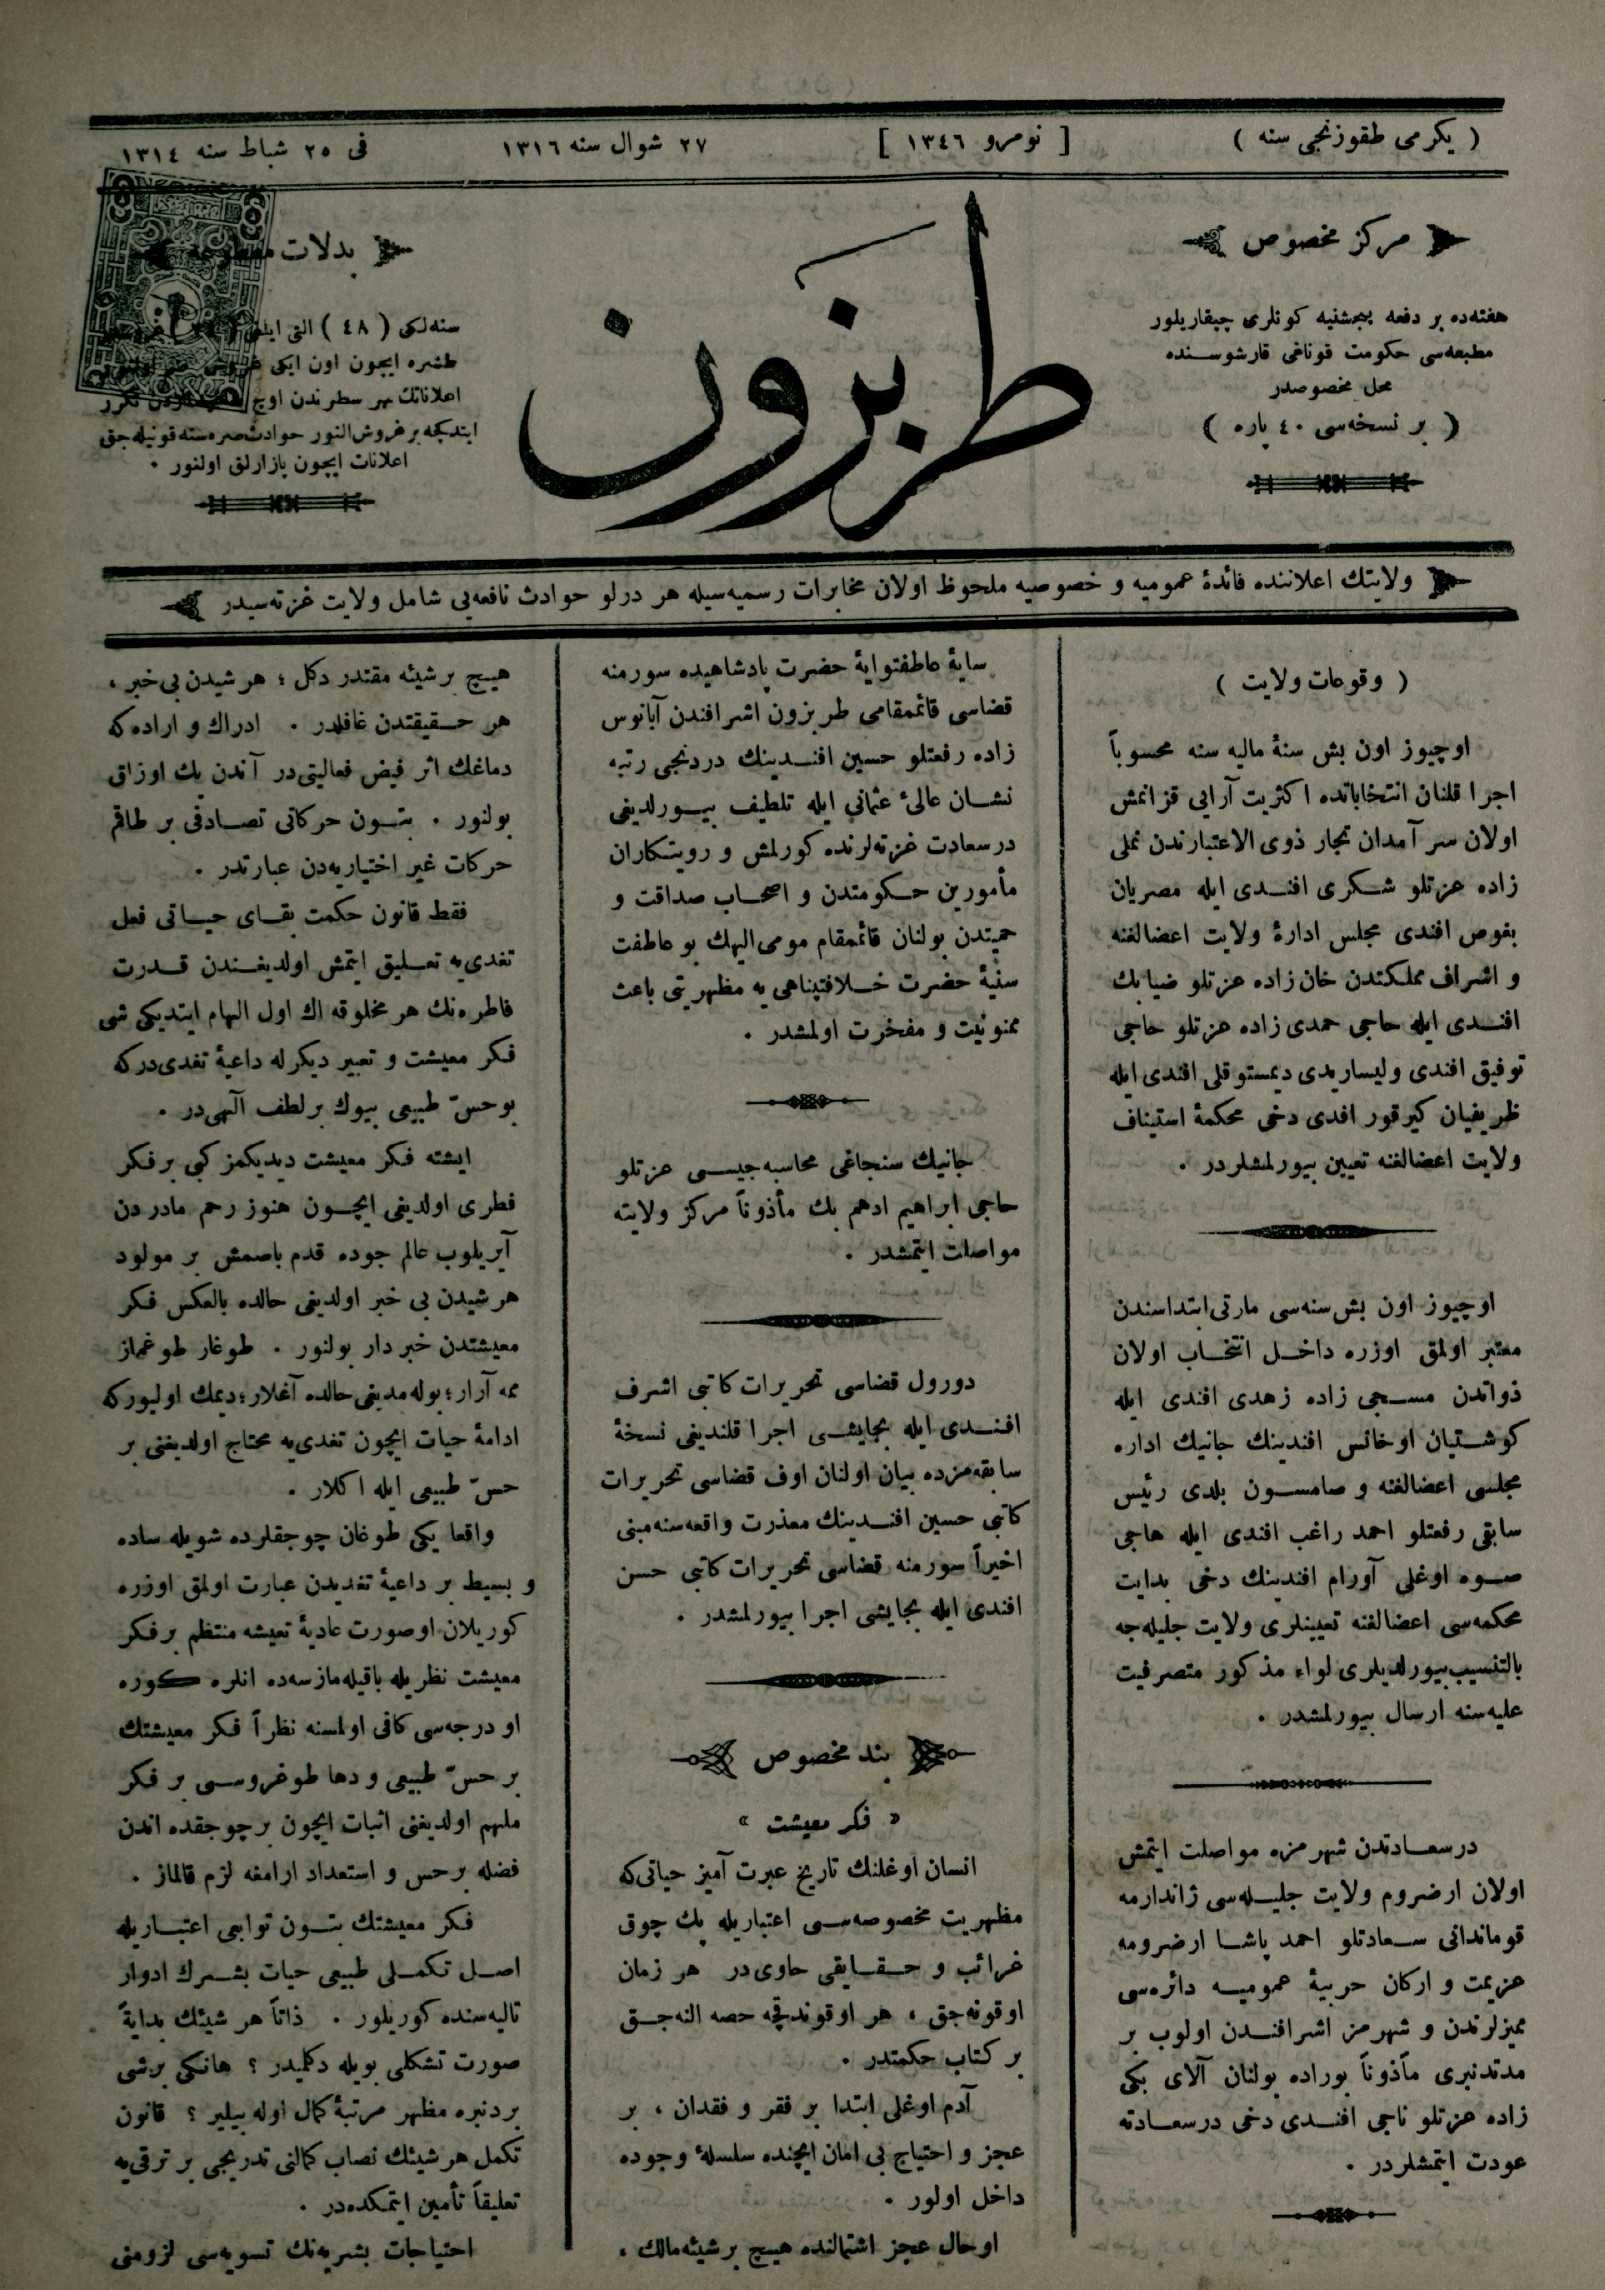 ( يكرمى طقوزنجى سنه )
[ نومرو ١٣٤٦ ]
٢٧ شوال سنه ١٣١٦
فى ٢٥ شباط سنه ١٣١٤
مركز مخصوص
هفته‌ده بر دفعه پنجشنبه كونلرى چيقاريلور
مطبعه‌سى حكومت قوناغى قارشوسنده
محل مخصوصدر
( بر نسخه‌سى ٤٠ پاره )
طربزون
بدلات
سنه‌لكى ( ٤٨ ) التى ايلغى
طشره ايچون اون ايكى غروش
اعلاناتك بهر سطرندن اوچ تكرر
ايتدكجه بر غروش النور حوادث صره‌سنه قونيله‌جق
اعلانات ايچون پازارلق اولنور .
ولايتك اعلاننده فائدهٔ عموميه و خصوصيه ملحوظ اولان مخابرات رسميه‌سيله هر درلو حوادث نافعه‌يى شامل ولايت غزته‌سيدر
( وقوعات ولايت )
اوچيوز اون بش سنهٔ ماليه سنه محسوباً
اجرا قلنان انتخاباتده اكثريت آرايى قزانمش
اولان سر آمدان تجار ذوى الاعتبارندن نملى
زاده عزتلو شكرى افندى ايله مصريان
بغوص افندى مجلس ادارهٔ ولايت اعضالغنه
و اشراف مملكتدن خان زاده عزتلو ضيا بك
افندى ايله حاجى حمدى زاده عزتلو حاجى
توفيق افندى وليساريدى ديمستوقلى افندى ايله
ظريفيان كيرقور افدى دخى محكمهٔ استيناف
ولايت اعضالغنه تعيين بيورلمشلردر .
اوچيوز اون بش سنه‌سى مارتى ابتداسندن
معتبر اولمق اوزره داخل انتخاب اولان
ذواتدن مسجى زاده زهدى افندى ايله
كوشتيان اوخانس افندينك جانيك اداره
مجلسى اعضالغنه و صامسون بلدى رئيس
سابقى رفعتلو احمد راغب افندى ايله حاجى
صوه اوغلى آورام افندينك دخى بدايت
محكمه‌سى اعضالغنه تعيينلرى ولايت جليله‌جه
بالتنسيب بيورلديلرى لواء مذكور متصرفيت
عليه‌سنه ارسال بيورلمشدر .
درسعادتدن شهرمزه مواصلت ايتمش
اولان ارضروم ولايت جليله‌سى ژاندارمه
قوماندانى سعادتلو احمد پاشا ارضرومه
عزيمت و اركان حربيهٔ عموميه دائره‌سى
مميزلرندن و شهرمز اشرافندن اولوب بر
مدتدنبرى مأذوناً بوراده بولنان آلاى بكى
زاده عزتلو ناجى افندى دخى درسعادته
عودت ايتمشلردر .
سايهٔ عاطفتوايهٔ حضرت پادشاهيده سورمنه
قضاسى قائممقامى طربزون اشرافندن آبانوس
زاده رفعتلو حسين افندينك دردنجى رتبه
نشان عالىٔ عثمانى ايله تلطيف بيورلديغى
درسعادت غزته‌لرنده كورلمش و رويتكاران
مأمورين حكومتدن و اصحاب صداقت و
حميتدن بولنان قائممقام مومى اليهك بو عاطفت
سنيهٔ حضرت خلافتپناهى يه مظهريتى باعث
ممنونيت و مفخرت اولمشدر .
جانيك سنجاغى محاسبه‌جيسى عزتلو
حاجى ابراهيم ادهم بك مأذوناً مركز ولايته
مواصلت ايتمشدر .
دورول قضاسى تحريرات كاتبى اشرف
افندى ايله بجايشى اجرا قلنديغى نسخهٔ
سابقه‌مزده بيان اولنان اوف قضاسى تحريرات
كاتبى حسين افندينك معذرت واقعه‌سنه مبنى
اخيراً سورمنه قضاسى تحريرات كاتبى حسن
افندى ايله بجايشى اجرا بيورلمشدر .
بند مخصوص
« فكر معيشت »
انسان اوغلنك تاريخ عبرت آميز حياتى‌كه
مظهريت مخصوصه‌سى اعتباريله پك چوق
غرائب و حقايقى حاوى‌در هر زمان
اوقونه‌جق ، هر اوقوندقچه حصه النه‌جق
بر كتاب حكمتدر .
آدم اوغلى ابتدا بر فقر و فقدان ، بر
عجز و احتياج بى امان ايچنده سلسلهٔ وجوده
داخل اولور .
اوحال عجز اشتمالنده هيچ برشيئه مالك ،
هيچ برشيئه مقتدر دكل ؛ هرشيدن بى خبر ،
هر حقيقتدن غافلدر . ادراك و اراده‌كه
دماغك اثر فيض فعاليتى‌در آندن پك اوزاق
بولنور . بتون حركاتى تصادفى بر طاقم
حركات غير اختياريه‌دن عبارتدر .
فقط قانون حكمت بقاى حياتى فعل
تغدى‌يه تعليق ايتمش اولديغندن قدرت
فاطره‌نك هر مخلوقه اك اول الهام ايتديكى شى
فكر معيشت و تعبير ديكرله داعيهٔ تغدى‌دركه
بوحسّ طبيعى بيوك بر لطف آلهى‌در .
ايشته فكر معيشت ديديكمز كبى برفكر
فطرى اولديغى ايچون هنوز رحم مادردن
آيريلوب عالم جوده قدم باصمش بر مولود
هرشيدن بى خبر اولديغى حالده بالعكس فكر
معيشتدن خبردار بولنور . طوغار طوغماز
ممه آرار؛ بوله‌مديغى حالده آغلار؛ ديمك اوليوركه
ادامهٔ حيات ايچون تغدى‌يه محتاج اولديغنى بر
حسّ طبيعى ايله اكلار .
واقعا يكى طوغان چوجقلرده شويله ساده
و بسيط بر داعيهٔ تغديدن عبارت اولمق اوزره
كوريلان اوصورت عاديهٔ تعيشه منتظم برفكر
معيشت نظريله باقيله‌مازسه‌ده انلره كوره
او درجه‌سى كافى اولمسنه نظراً فكر معيشتك
بر حسّ طبيعى و دها طوغروسى بر فكر
ملهم اولديغنى اثبات ايچون برچوجقده اندن
فضله برحس و استعداد ارامغه لزم قالماز .
فكر معيشتك بتون توابعى اعتباريله
اصل تكملى طبيعى حيات بشرك ادوار
تاليه‌سنده كوريلور . ذاتاً هر شيئك بدايةً
صورت تشكلى بويله دكليدر ؟ هانكى برشى
بردنبره مظهر مرتبهٔ كمال اوله بيلير ؟ قانون
تكمل هرشيئك نصاب كمالنى تدريجى بر ترقى‌يه
تعليقاً تأمين ايتمكده‌در .
احتياجات بشريه‌نك تسويه‌سى لزومنى